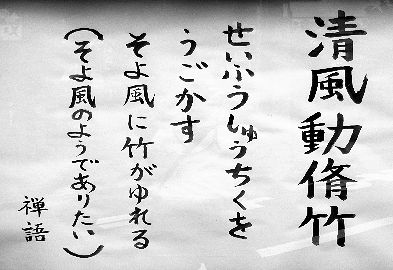 清風動脩竹
せいふうしゅうちくを
うごかす
そよ風に竹がゆれる
(そよ風のようでありたい)
禅語